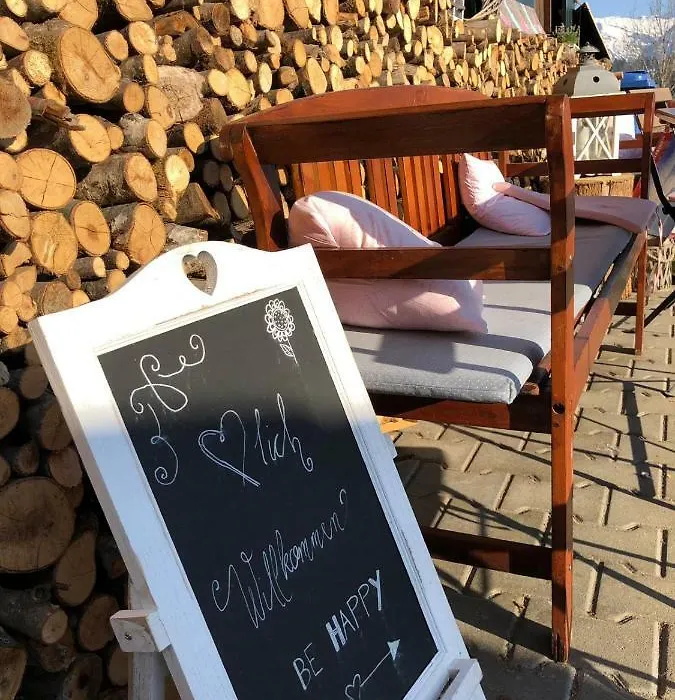 ♡lich
Willkommen
BE HAPPY